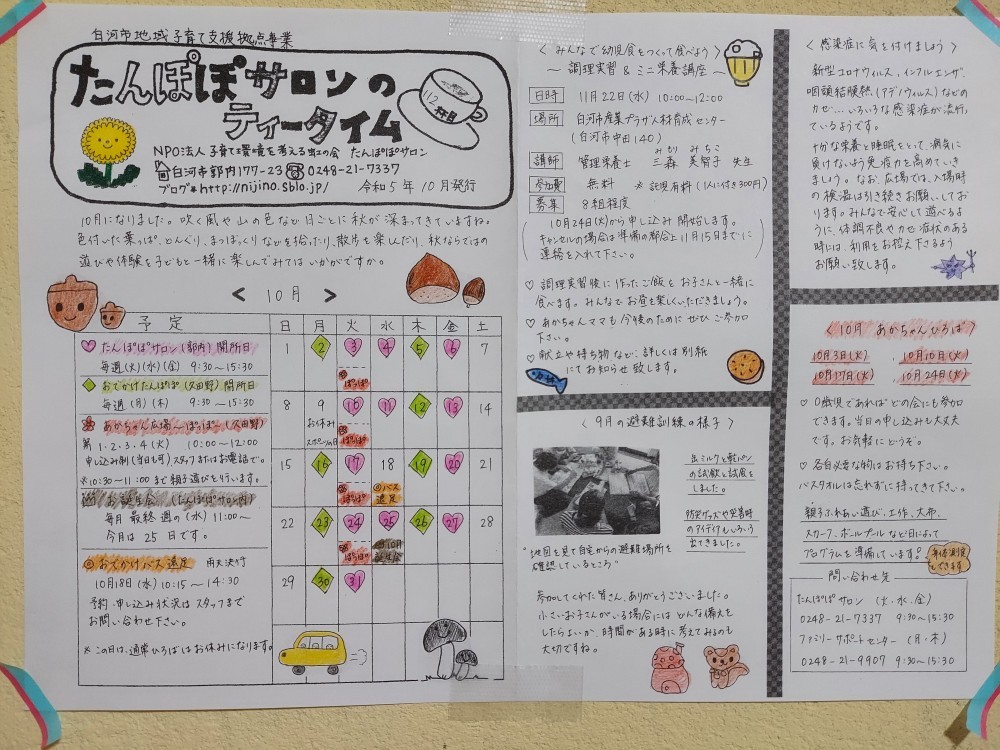 白河市地域子育て支援拠点事業
たんぽぽサロンの
ティータイム
112杯目
NPO法人 子育て環境を考える虹の会 たんぽぽサロン
白河市郭内177-23 ☎0248-21-7337
ブログ*http://nijino.sblo.jp/ 令和5年10月発行
10月になりました。吹く風や山の色など日ごとに秋が深まってきていますね。
色付いた葉っぱ、どんぐり、まつぼっくりなどを拾ったり、散歩を楽しんだり、秋ならではの
遊びや体験を子どもと一緒に楽しんでみてはいかがですか。
< 10月 >
予定
たんぽぽサロン(郭内)開所日
毎週(火)(水)(金) 9:30~15:30
おでかけたんぽぽ(久田野)開所日
毎週(月)(木) 9:30~15:30
あかちゃん広場~ぽっぽ(久田野)
第1.2.3.4(火) 10:00~12:00
申し込み制(当日も可)スタッフまたはお電話で。
※10:30~11:00まで親子遊びを行います。
お誕生会 (たんぽぽサロン内)
毎月最終週の(水) 11:00~
今月は25日です。
おでかけバス遠足 雨天決行
10月18日(水)10:15~14:30
予約・申し込み状況はスタッフまで
お問い合わせ下さい。
※この日は、通常ひろばはお休みになります。
日 月 火 水 木 金 土
1 2 3 4 5 6 7
ぽっぽ
8 9 10 11 12 13 14
お休み
スポーツの日
ぽっぽ
15 16 17 18 19 20 21
ぽっぽ
バス
遠足
22 23 24 25 26 27 28
ぽっぽ
10月
誕生会
29 30 31
< みんなで幼児食をつくって食べよう >
~ 調理実習 & ミニ栄養講座 ~
日時 11月22日(水) 10:00~12:00
場所 白河市産業プラザ人材育成センター
(白河市中田140)
みもり みちこ
講師 管理栄養士 三森 美智子 先生
参加費 無料 ※託児有料(1人に付き300円)
募集 8組程度
10月24日(火)から申し込み開始します。
キャンセルの場合は準備の都合上11月15日までに
連絡を入れて下さい。
♡ 調理実習後に作ったご飯をお子さんと一緒に
食べます。みんなでお昼を楽しくいただきましょう。
♡ あかちゃんママも今後のためにぜひご参加
下さい。
♡ 献立や持ち物など、詳しくは別紙
にてお知らせ致します。
< 9月の避難訓練の様子 >
缶ミルクと乾パン
の試飲と試食を
しました。
防災グッズや災害時
のアイディアもいろいろ
出てきました。
"地図を見て自宅からの避難場所を
確認しているところ"
参加してくれた皆さん、ありがとうございました。
小さいお子さんがいる場合にはどんな備えを
したらよいか、時間がある時に考えてみるのも
大切ですね。
< 感染症に気を付けましょう >
新型コロナウィルス、インフルエンザ、
咽頭結膜熱(アデノウィルス)などの
カゼ...いろいろな感染症が流行し
ているようです。
十分な栄養と睡眠をとって、病気に
負けないよう免疫力を高めていき
ましょう。なお、広場では、入場時
の検温は引き続きお願いしてお
ります。みんなで安心して遊べるよ
うに、体調不良やカゼ症状のある
時には、利用をお控え下さるよう
お願い致します。
< 10月 あかちゃんひろば >
10月3日(火)、10月10日(火)
10月17日(火)、10月24日(火)
♡ 0歳児であればどの会にも参加
できます。当日の申し込みも大丈夫
です。お気軽にどうぞ。
♡ 各自必要な物はお持ち下さい。
バスタオルは忘れずに持ってきて下さい。
親子ふれあい遊び、工作、大布、
スカーフ、ボールプールなど日によって
プログラムを準備しています。
身体測定
もできます
問い合わせ先
たんぽぽサロン (火・水・金)
0248-21-7337 9:30~15:30
ファミリーサポートセンター (月・木)
0248-21-9907 9:30~15:30